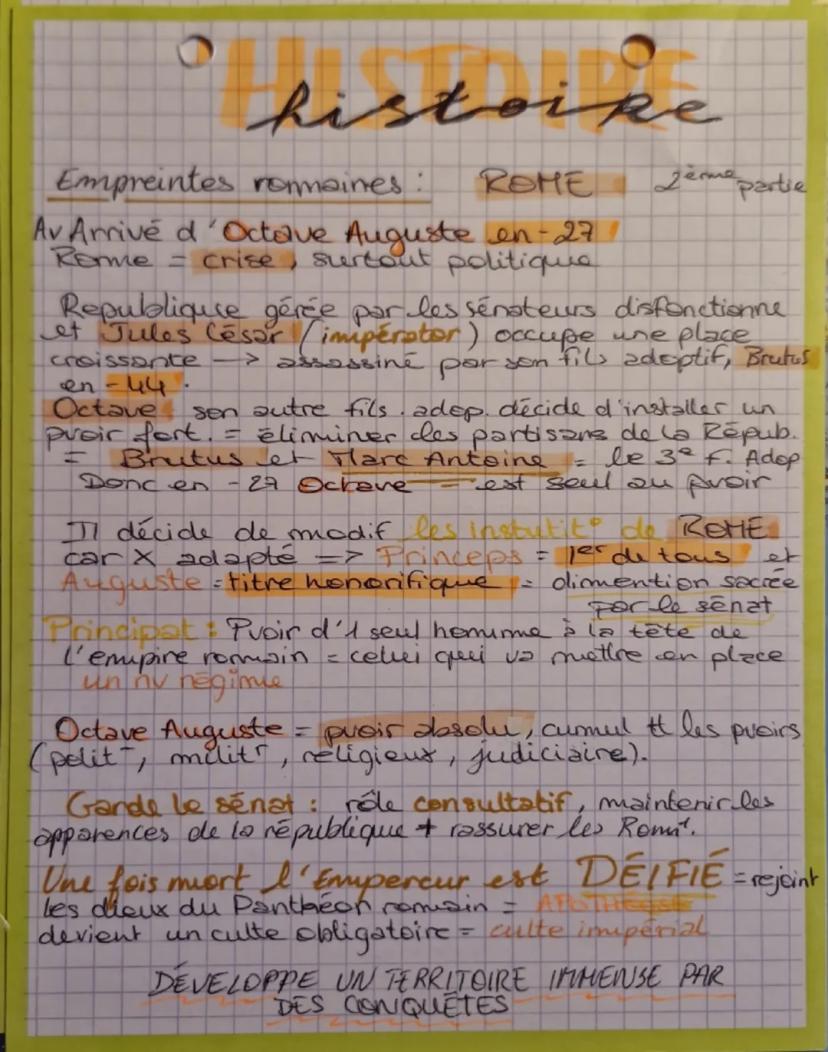 HISTOIRE
histoire
Empreintes romaines : ROME 2ème partie
Av Arrivé d'Octave Auguste en -27
Rome = crise, surtout politique
Republique gérée par les sénateurs disfonctionne
et Jules César (impérator) occupe une place
croissante —> assassiné par son fils adoptif, Brutus
en -44.
Octave son autre fils. adop. décide d'installer un
pvoir fort. = éliminer les partisans de la Répub.
= Brutus et Marc Antoine = le 3e f. Adop
Donc en -27 Octave = est seul au pvoir
Il décide de modif les instutit° de ROME
car X adapté => Princeps = 1er de tous et
Auguste = titre honorifique = dimention sacrée
par le sénat
Principat : Pvoir d'1 seul homme à la tête de
l'empire romain = celui qui va mettre en place
un nv régime
Octave Auguste = pvoir absolu, cumul tt les pvoirs
(polit-, militr, religieux, judiciaire).
Garde le sénat : rôle consultatif, maintenir les
apparences de la république + rassurer les Romns.
Une fois mort l'Empereur est DÉIFIÉ = rejoint
les dieux du Panthéon romain = APOTHÉOSE
devient un culte obligatoire = culte impérial
DÉVELOPPE UN TERRITOIRE IMMENSE PAR
DES CONQUÊTES